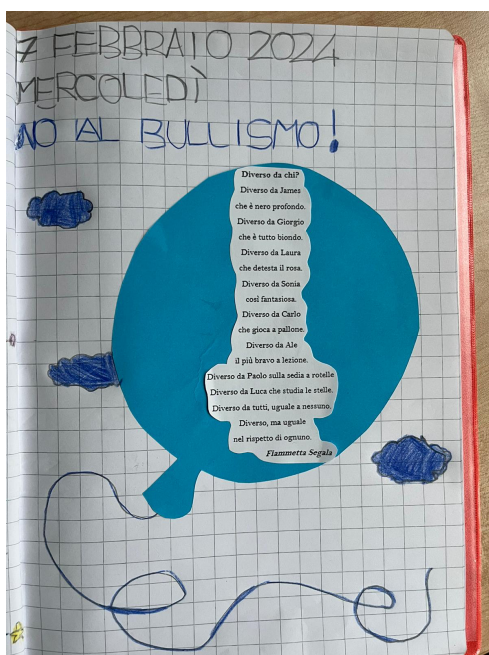 7 FEBBRAIO 2024
MERCOLEDÌ
NO AL BULLISMO!
Diverso da chi?
Diverso da James
che è nero profondo.
Diverso da Giorgio
che è tutto biondo.
Diverso da Laura
che detesta il rosa.
Diverso da Sonia
così fantasiosa.
Diverso da Carlo
che gioca a pallone.
Diverso da Ale
il più bravo a lezione.
Diverso da Paolo sulla sedia a rotelle
Diverso da Luca che studia le stelle.
Diverso da tutti, uguale a nessuno.
Diverso, ma uguale
nel rispetto di ognuno.
Fiammetta Segala